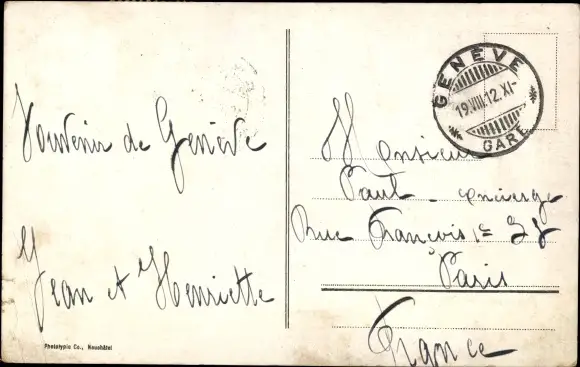 Souvenir de Genève
Jean et Henriette
Phototypie Co., Neuchâtel
GENÈVE
19.VIII.12.XI-
GARE
Monsieur
Paul
Rue François 1er
à Paris
France